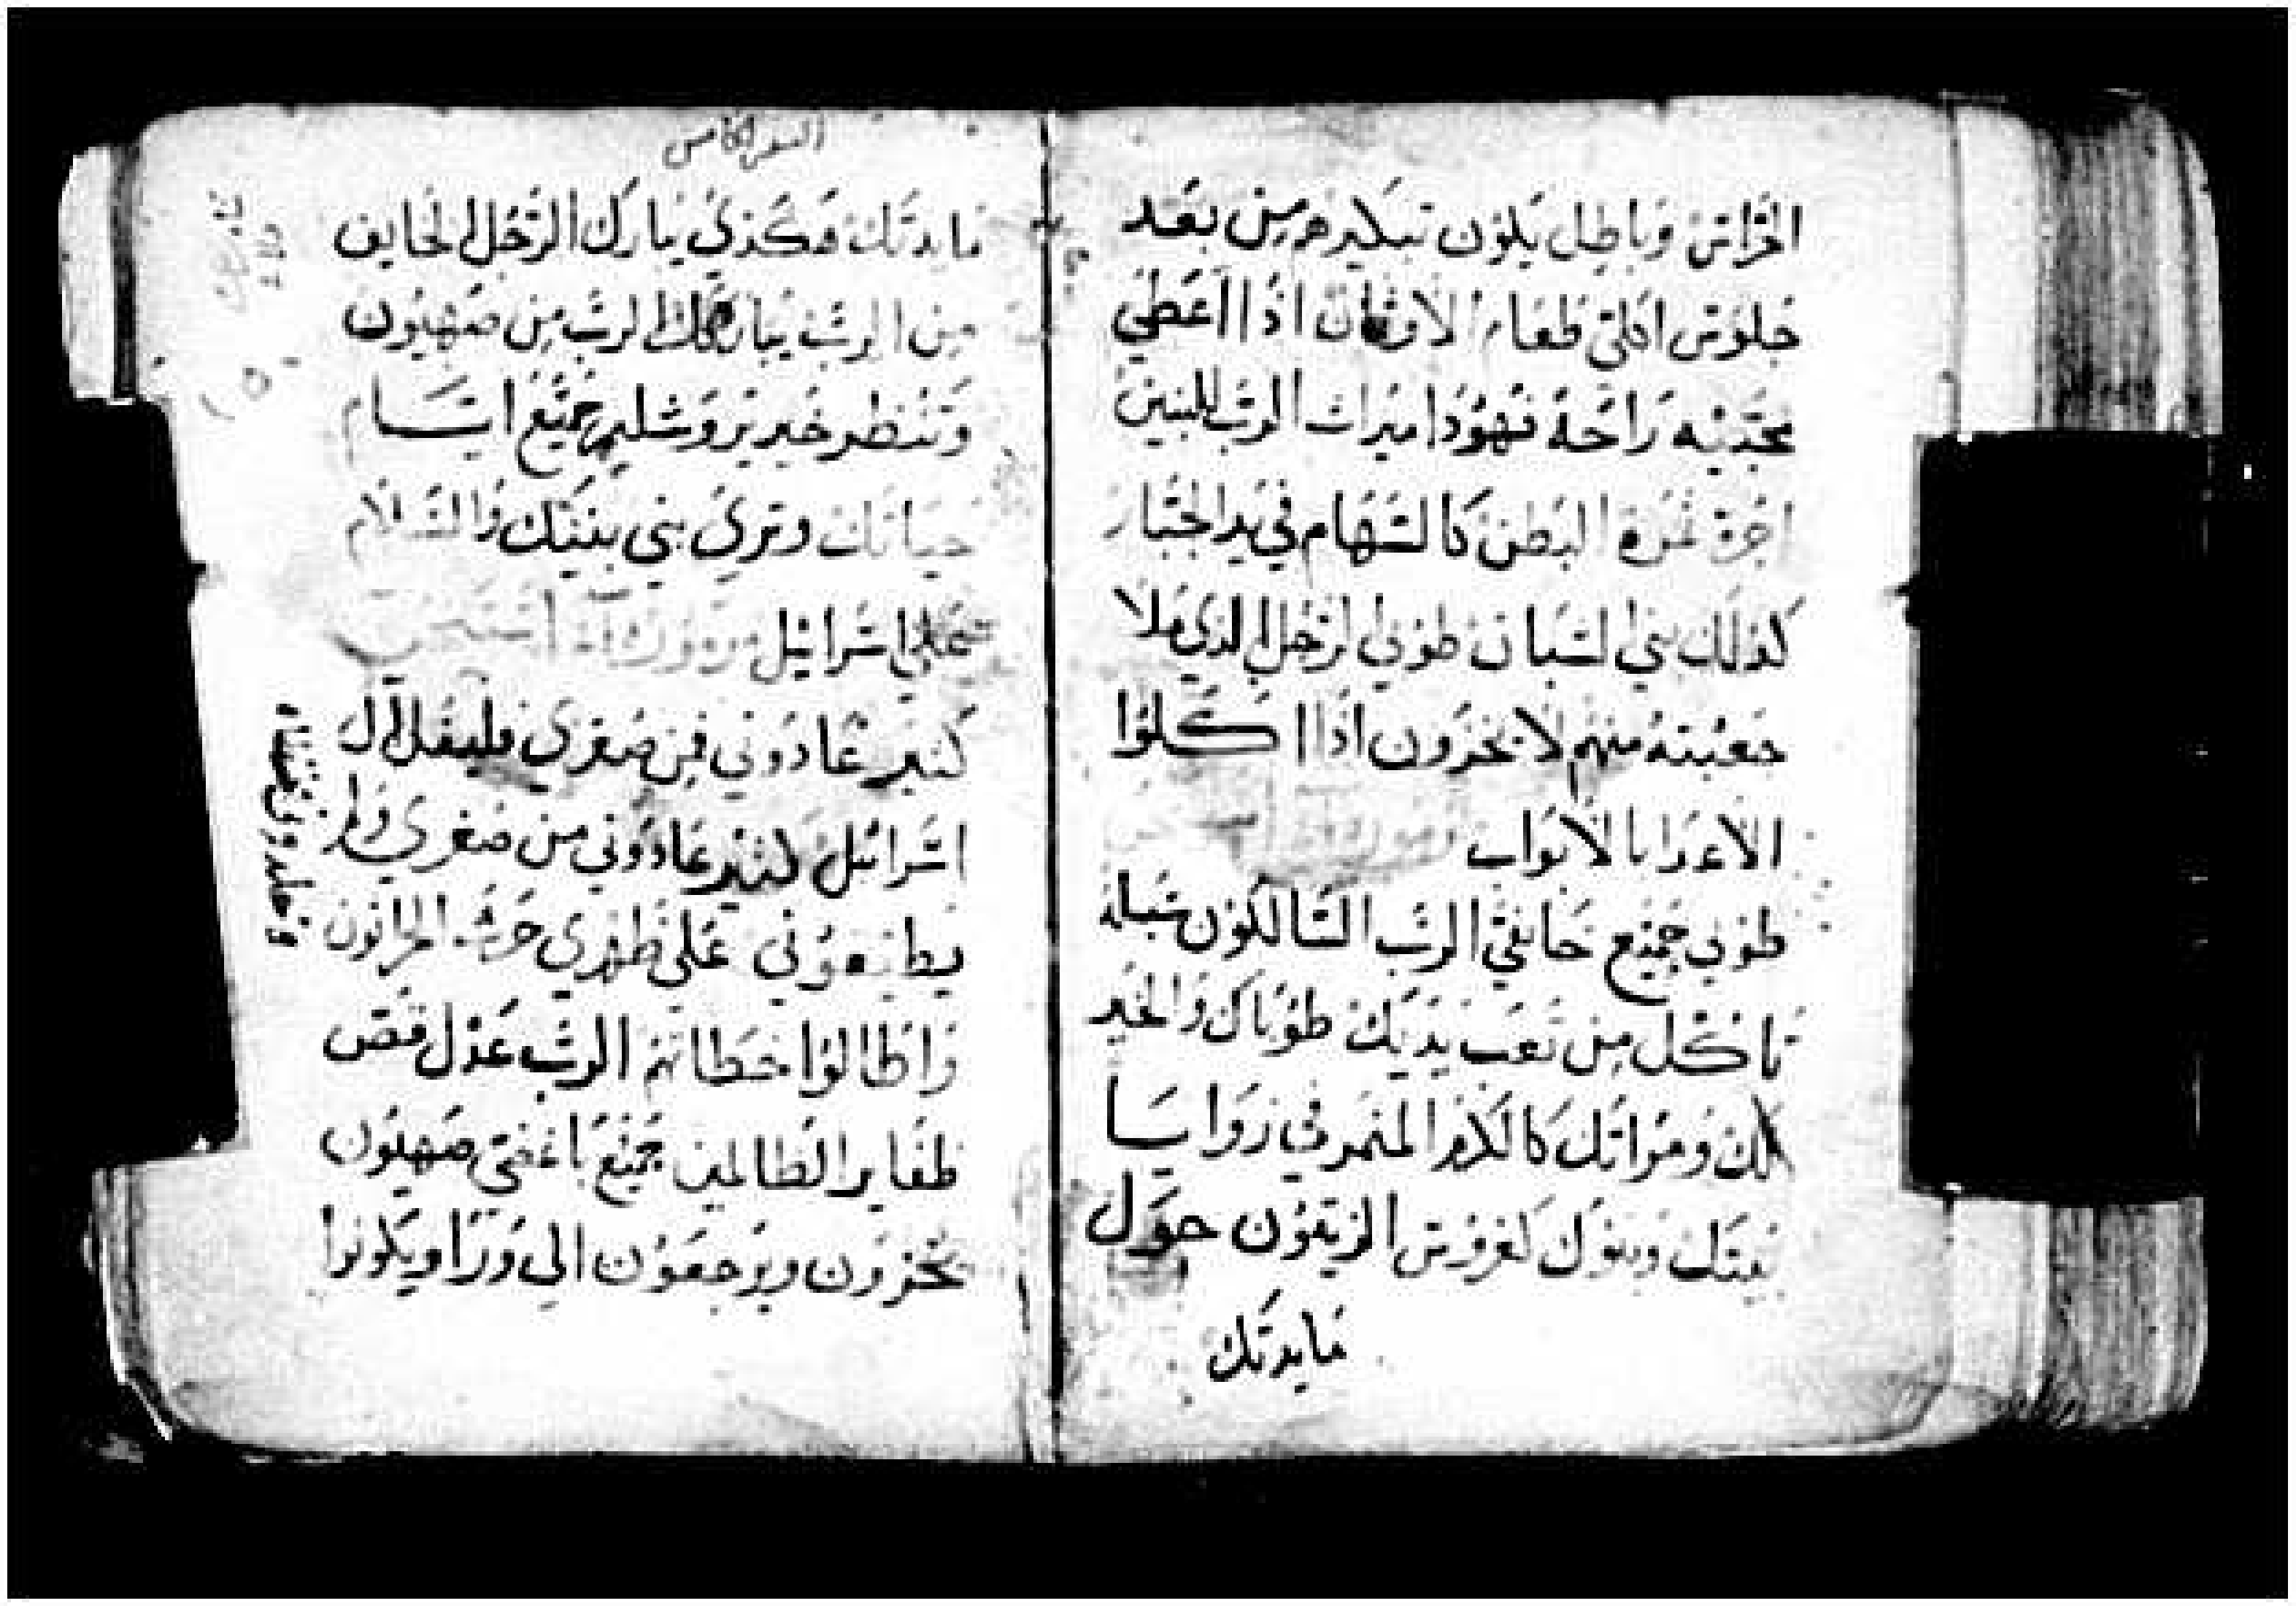 الحُرّاس وَباطِل يَكون تبكيرهم مِن بَعَد
جلوس اكلي طَعَام الاوثان اذَا اَعَطي
محبّيه رَاحَة فهوُدَا ميرَاث الرَبّ البنين
اجرَة ثمَرة البَطن كالسّهَام في يَد الجبّار
كذلك بني الشبَان طوُبي الرَجل الذي مَلا
جعبته منهم لا يخزون اذَا كَلموُا
الاعدَا بالابوَاب مزمور
طوُبي جَميْع خَائفيّ الرَبّ السَالكوْن سُبله
تَاكُل مِن تعَب يَدَيك طوُبَاك وَالخَير
لك وَمرَاتك كالكرم المثمر في زوَايَا
بَيتك وَبنوك كغروُس الزيتوُن حوَل
مَايدتك
السفر الخامس
مَايدتك هَكذي يبَارك الرَجُل الخايف
مِن الرَبّ يبَاركك الرَبّ مِن صَهيوُن
وَتنظر خير يروَشليم جَميْع ايَـام
حيَاتك وترَي بني بنيك وَالسَّلَام
عَلي اسرَائيل مزمور
كثير عَادَوني مِن صغري فليقل ال
اسرَائيل كثير عَادَوني من صَغري وَلم
يطيعوُني عَلي ظهرَي حَرَث الحراثون
وَاطَالوُا خطَاتهم الرَبّ عَدْل قصّ
ظفَاير الظالمين جميْع بَاغضيّ صَهيوُن
يخزوَن ويرَجعوُن الي وَرَا ويَكونوا